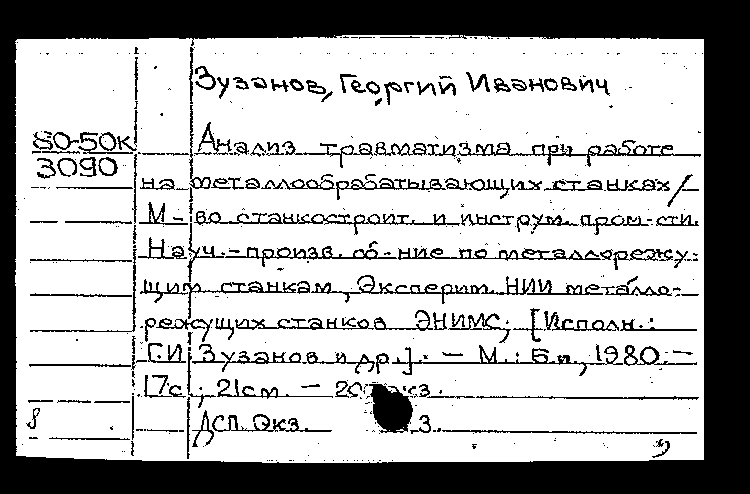 Зузанов, Георгий Иванович
80-50к
3090
Анализ травматизма при работе
на металлообрабатывающих станках /
М-во станкостроит. и инструм. пром-сти.
Науч.-произв. об-ние по металлорежу-
щим станкам, Эксперим. НИИ металло-
режущих станков ЭНИМС; [Исполн.:
Г.И. Зузанов и др.]. - М.: Б.и., 1980. -
17с.; 21см. - экз.
ДСП. Экз. 3.
8